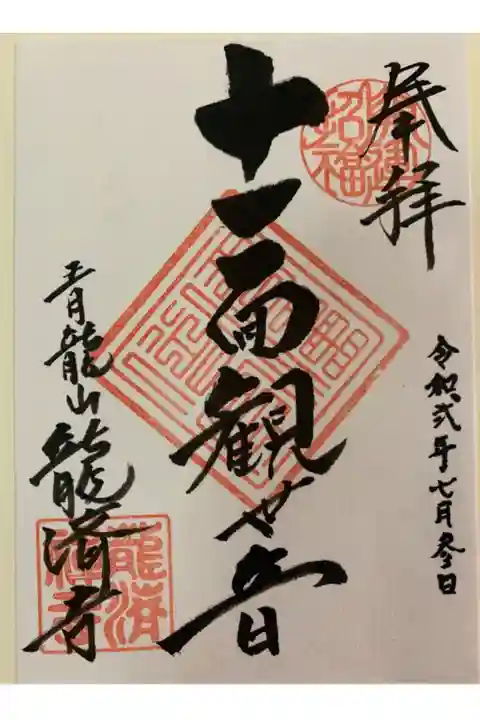 奉拝
令和弐年七月参日
十一面観世音
青龍山龍済寺
招福
龍済禅寺